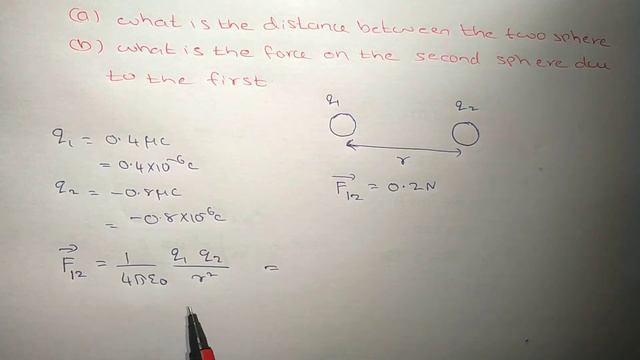 (a) what is the distance between the two sphere
(b) what is the force on the second sphere due
to the first
q1 q2
q1 = 0.4 μC
= 0.4×10⁻⁶C
r
q2 = -0.8 μC
F12 = 0.2N
= -0.8×10⁻⁶C
F12 = 1/4πε0 q1 q2/r² =